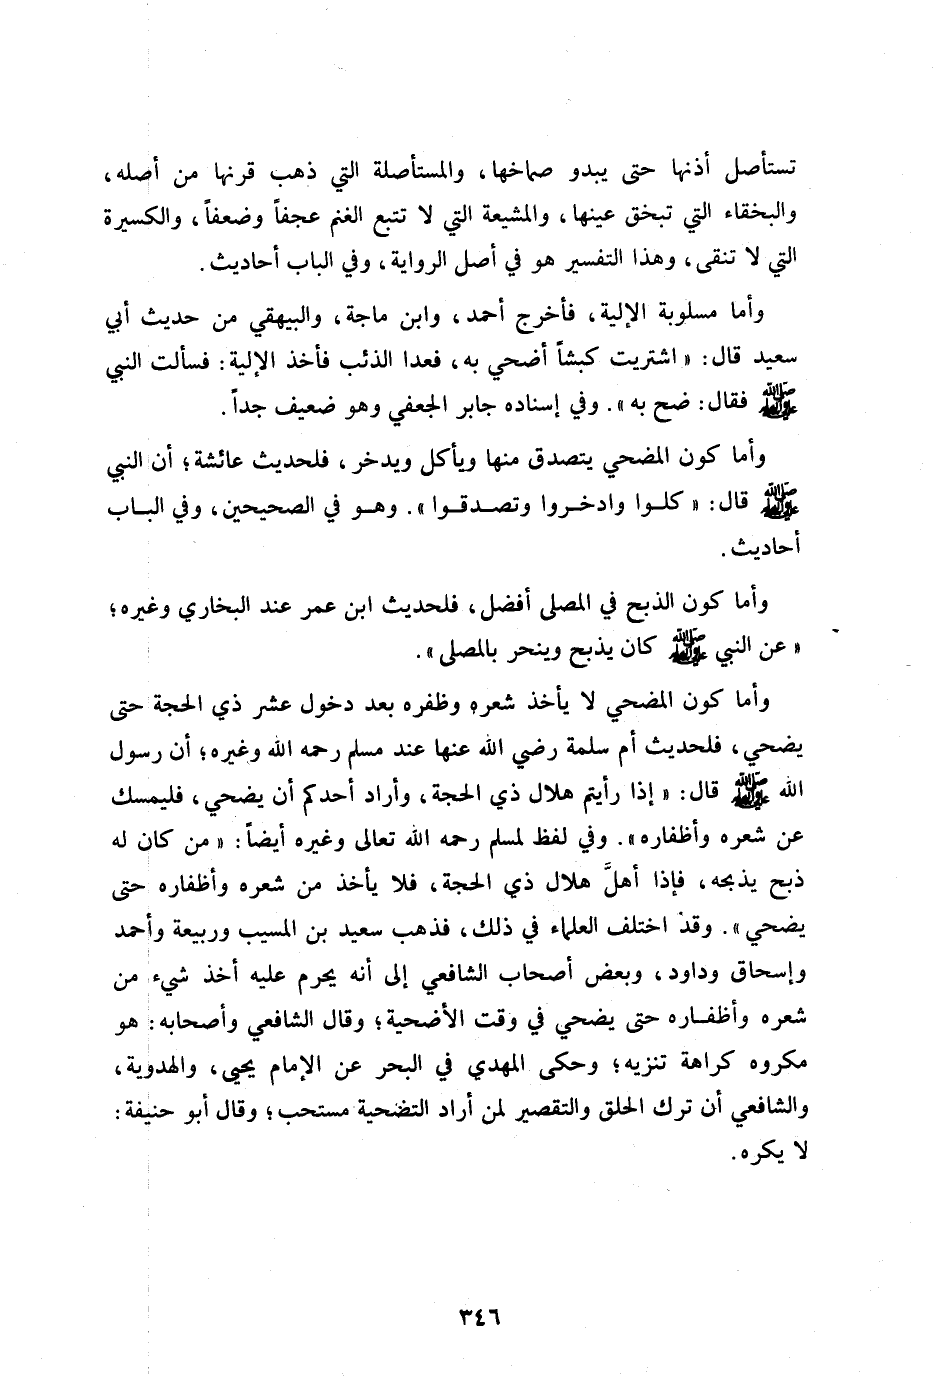 تستأصل أذنها حتى يبدو صماخها، والمستأصلة التي ذهب قرنها من أصله،
والبخقاء التي تبخق عينها، والمشيعة التي لا تتبع الغنم عجفاً وضعفاً، والكسيرة
التي لا تنقى، وهذا التفسير هو في أصل الرواية، وفي الباب أحاديث.
وأما مسلوبة الإلية، فأخرج أحمد، وابن ماجة، والبيهقي من حديث أبي
سعيد قال: «اشتريت كبشاً أضحي به، فعدا الذئب فأخذ الإلية: فسألت النبي
ﷺ فقال: ضح به». وفي إسناده جابر الجعفي وهو ضعيف جداً.
وأما كون المضحي يتصدق منها ويأكل ويدخر، فلحديث عائشة؛ أن النبي
ﷺ قال: «كلـوا وادخـروا وتصـدقـوا». وهـو في الصحيحين، وفي البـاب
أحاديث.
وأما كون الذبح في المصلى أفضل، فلحديث ابن عمر عند البخاري وغيره؛
«عن النبي ﷺ كان يذبح وينحر بالمصلى».
وأما كون المضحي لا يأخذ شعره وظفره بعد دخول عشر ذي الحجة حتى
يضحي، فلحديث أم سلمة رضي الله عنها عند مسلم رحمه الله وغيره؛ أن رسول
الله ﷺ قال: «إذا رأيتم هلال ذي الحجة، وأراد أحدكم أن يضحي، فليمسك
عن شعره وأظفاره». وفي لفظ لمسلم رحمه الله تعالى وغيره أيضاً: «من كان له
ذبح يذبحه، فإذا أهلَّ هلال ذي الحجة، فلا يأخذ من شعره وأظفاره حتى
يضحي». وقد اختلف العلماء في ذلك، فذهب سعيد بن المسيب وربيعة وأحمد
وإسحاق وداود، وبعض أصحاب الشافعي إلى أنه يحرم عليه أخذ شيء من
شعره وأظفـاره حتى يضحي في وقت الأضحية؛ وقال الشافعي وأصحابه: هو
مكروه كراهة تنزيه؛ وحكى المهدي في البحر عن الإمام يحيى، والهدوية،
والشافعي أن ترك الحلق والتقصير لمن أراد التضحية مستحب؛ وقال أبو حنيفة:
لا يكره.
٣٤٦